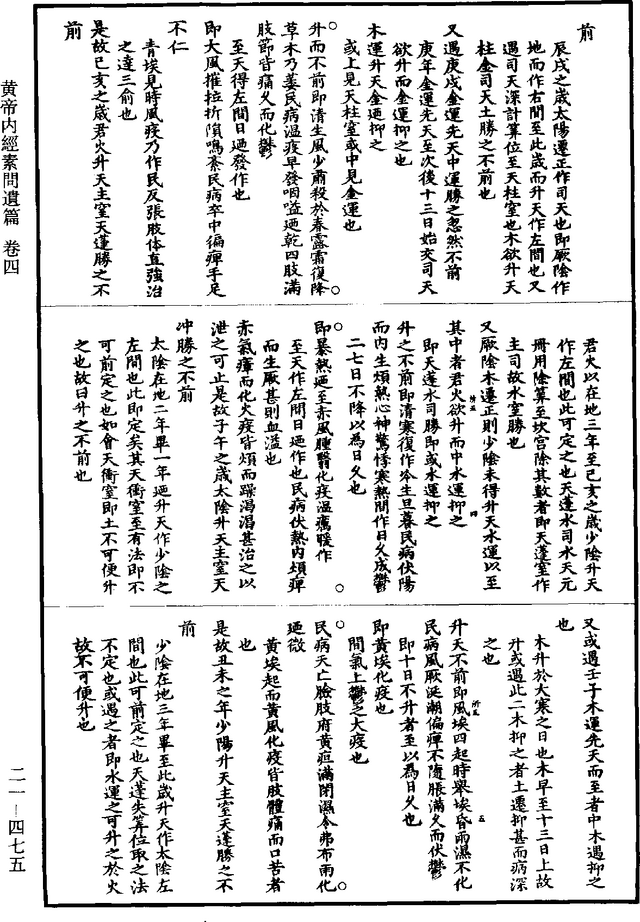 前
辰戌之歲太陽遷正作司天也即厥陰作
地而作右間至此歲而升天作左間也又
遇司天深計算位至天柱室也木欲升天
柱金司天土勝之不前也
又遇庚戌金運先天中運勝之忽然不前
庚年金運先天至次後十三日始交司天
欲升而金運抑之也
木運升天金迺抑之
或上見天柱室或中見金運也
升而不前即清生風少肅殺於春露霜復降
草木乃萎民病溫疫早發咽嗌迺乾四肢滿
肢節皆痛久而化鬱
至天得左間日迺發作也
即大風摧拉折隕鳴紊民病卒中偏痺手足
不仁
青埃見時風疫乃作民反張肢体直強治
之達三俞也
是故己亥之歲君火升天主室天蓬勝之不
前
君火以在地三年至己亥之歲少陰升天
作左間也此可定之也天蓬水司水天元
冊用除算至坎宮除其數者即天蓬室作
主司故水室勝也
又厥陰未遷正則少陰未得升天水運以至
其中者君火欲升而中水運抑之
即天蓬水司勝即或水運抑之
升之不前即清寒復作冷生旦暮民病伏陽
而內生煩熱心神驚悸寒熱間作日久成鬱
二七日不降以為日久也
即暴熱迺至赤風腫翳化疫溫癘暖作
至天作左間日迺作也民病伏熱內煩痺
而生厥甚則血溢也
赤氣瘴而化火疫皆煩而躁渴渴甚治之以
泄之可止是故子午之歲太陰升天主室天
沖勝之不前
太陰在地二年畢一年迺升天作少陰之
左間也此即定矣其天衝室至有法即不
可前定之也如會天衝室即土不可便升
之也故曰升之不前也
又或遇壬子木運先天而至者中木遇抑之
也
木升於大寒之日也木早至十三日上故
升或遇此二木抑之者土遷抑甚而病深
之也
升天不前即風埃四起時舉埃昏雨濕不化
民病風厥涎潮偏痺不隨脹滿久而伏鬱
即十日不升者至以為日久也
即黃埃化疫也
間氣上鬱之大疫也
民病夭亡臉肢府黃疸滿閉濕令弗布雨化
迺微
黃埃起而黃風化疫皆肢體痛而口苦者
也
是故丑未之年少陽升天主室天蓬勝之不
前
少陰在地三年畢至此歲升天作太陰左
間也此可前定之也天蓬失算位取之法
不定也或遇之者即水運之可升之於火
故不可便升也
黃帝内經素問遺篇 卷四
二一－四七五